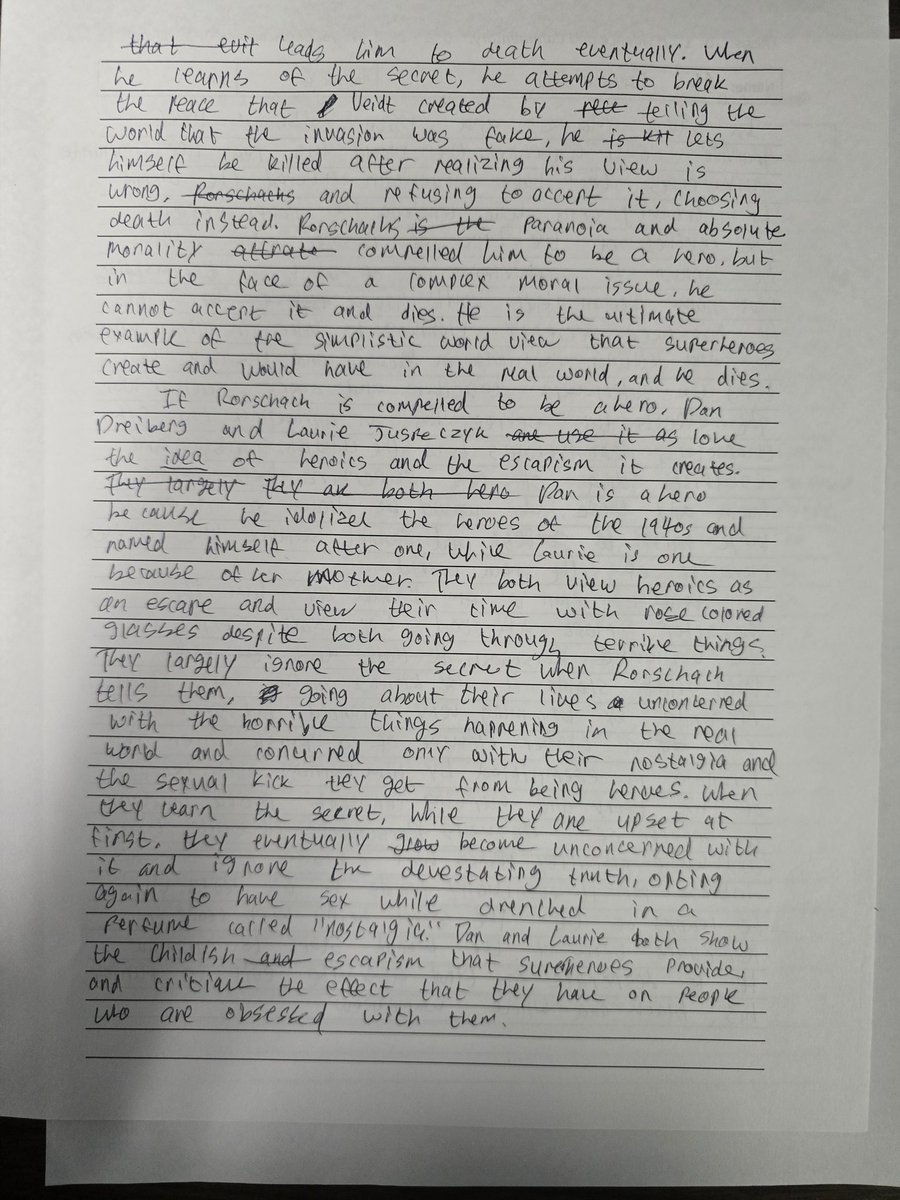 that evil leads him to death eventually. When
he learns of the secret, he attempts to break
the peace that Veidt created by telling the
world that the invasion was fake, he is kil lets
himself be killed after realizing his view is
wrong, Rorschachs and refusing to accept it, choosing
death instead. Rorschachs is the paranoia and absolute
morality compelled him to be a hero, but
in the face of a complex moral issue, he
cannot accept it and dies. He is the ultimate
example of the simplistic world view that superheroes
create and would have in the real world, and he dies.
If Rorschach is compelled to be a hero, Dan
Dreiberg and Laurie Juspeczyk are use it as love
the idea of heroics and the escapism it creates.
They largely They are both hero Dan is a hero
because he idolized the heroes of the 1940s and
named himself after one, while Laurie is one
because of her mother. They both view heroics as
an escape and view their time with rose colored
glasses despite both going through terrible things.
They largely ignore the secret when Rorschach
tells them, going about their lives unconcerred
with the horrible things happening in the real
world and concurred only with their nostalgia and
the sexual kick they get from being heroes. When
they learn the secret, while they are upset at
first, they eventually grow become unconcerned with
it and ignore the devestating truth, opting
again to have sex while drenched in a
perfume called "nostalgia." Dan and Laurie both show
the childish and escapism that superheroes provide,
and critique the effect that they have on people
who are obsessed with them.